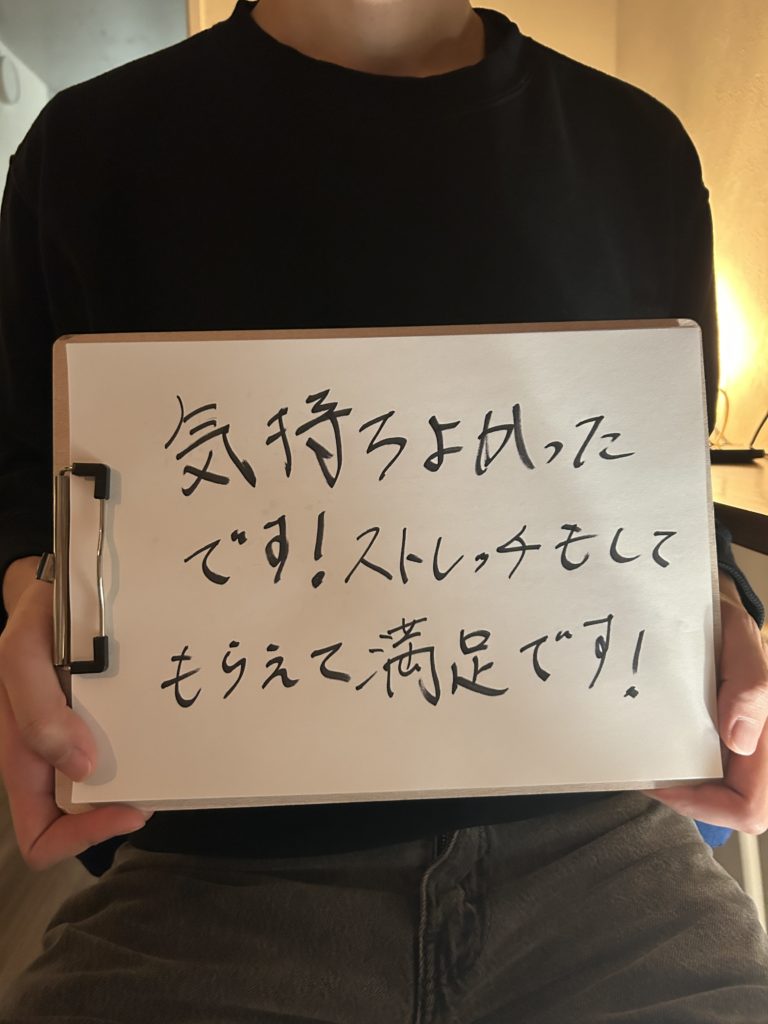 気持ちよかった
です！ストレッチもして
もらえて満足です！